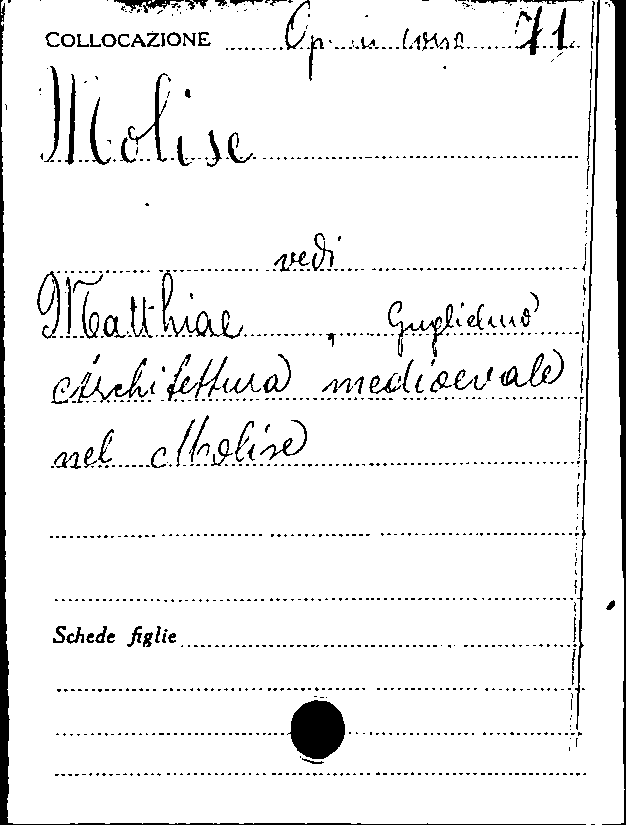 COLLOCAZIONE Op. in corso 71
Molise
vedi
Matthiae, Guglielmo
Architettura medioevale
nel Molise
Schede figlie